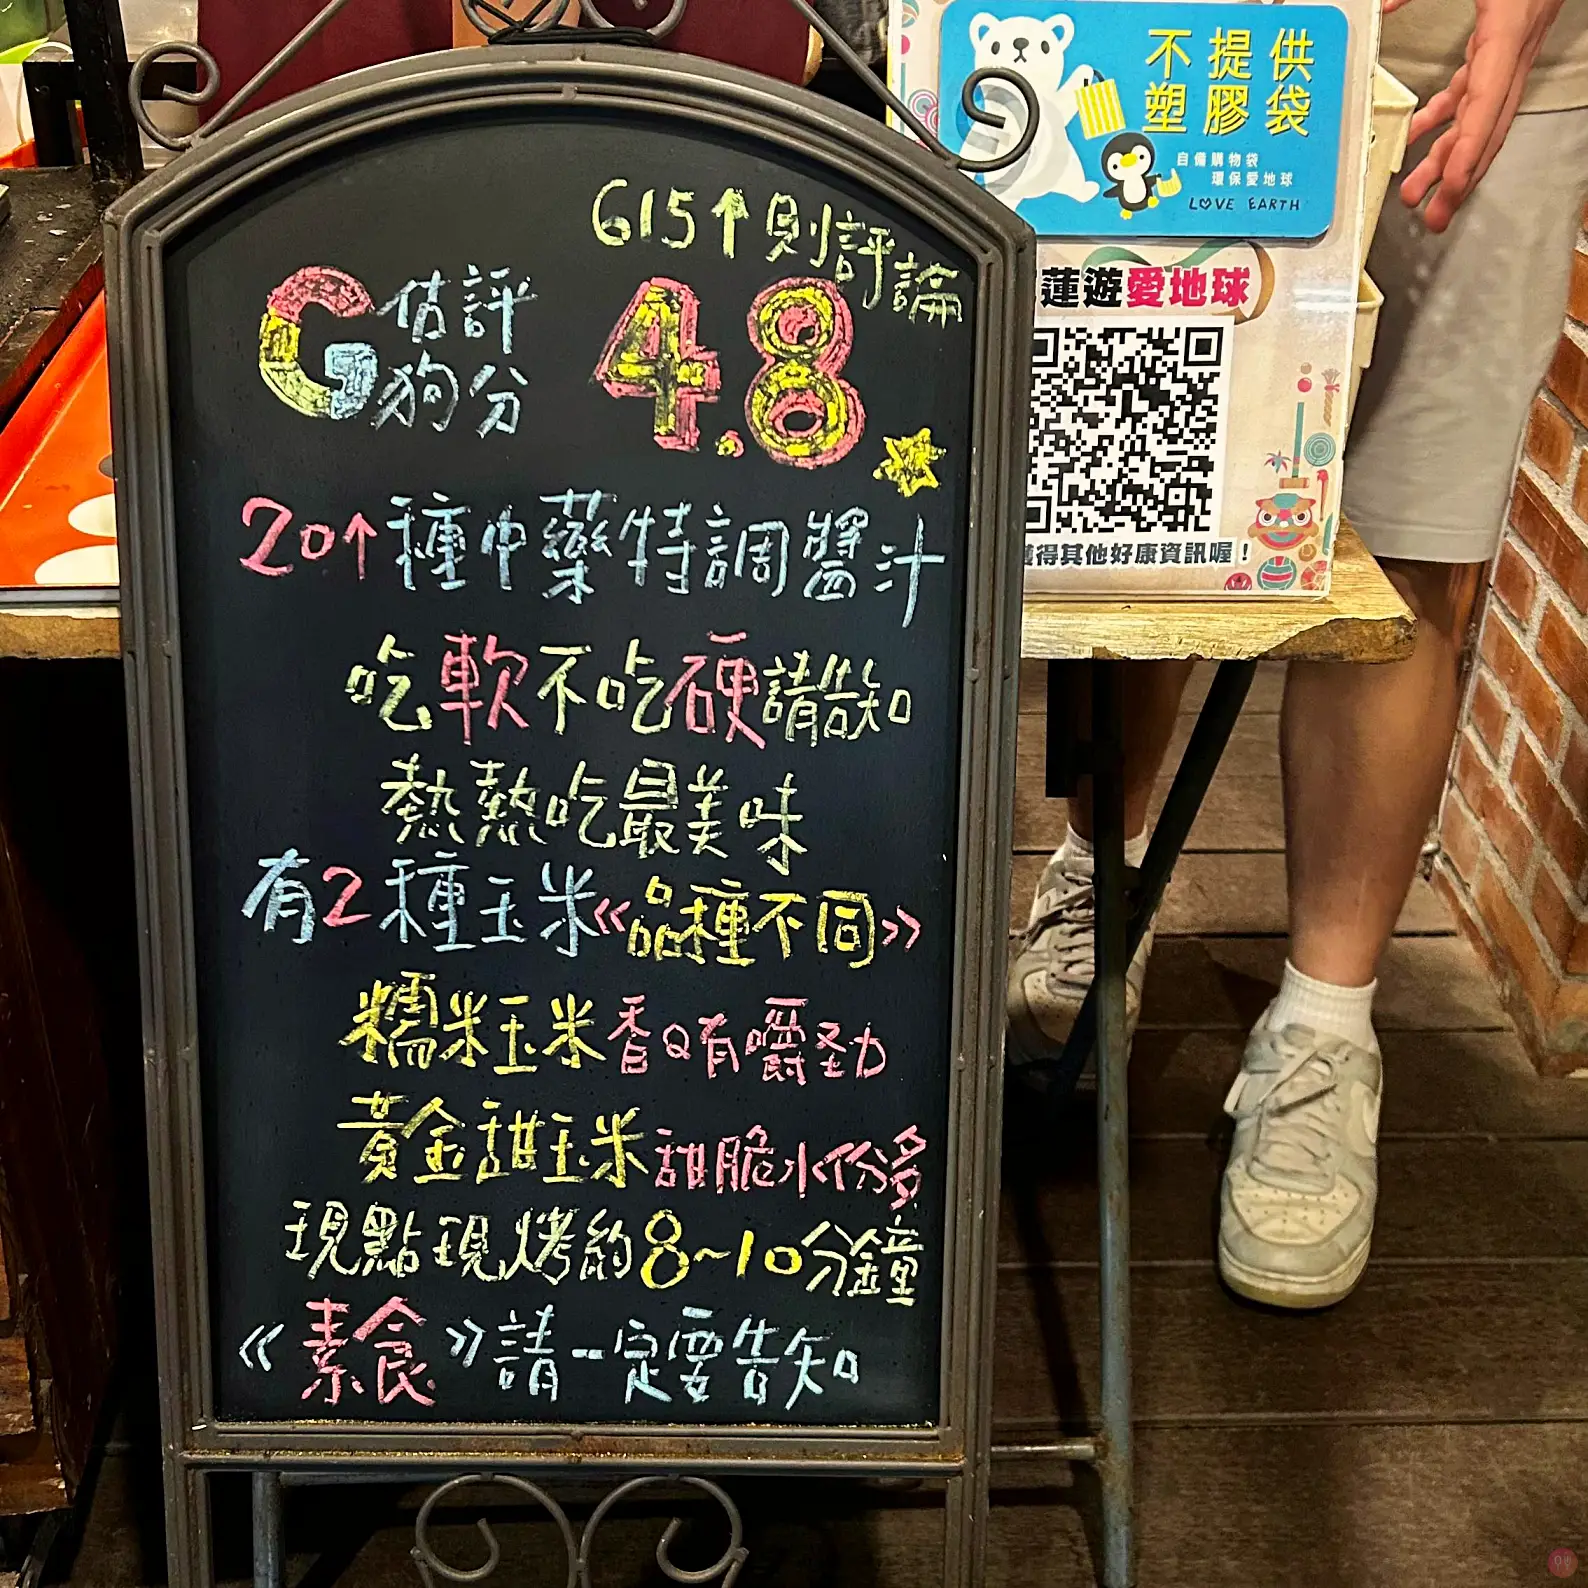 615↑則評論
G估狗評分 4.8
20↑種中藥特調醬汁
吃軟不吃硬請告知
熱熱吃最美味
有2種玉米《品種不同》
糯米玉米香Q有嚼勁
黃金甜玉米甜脆水份多
現點現烤約8~10分鐘
《素食》請一定要告知
不提供
塑膠袋
自備購物袋
環保愛地球
LOVE EARTH
蓮遊愛地球
得其他好康資訊喔！